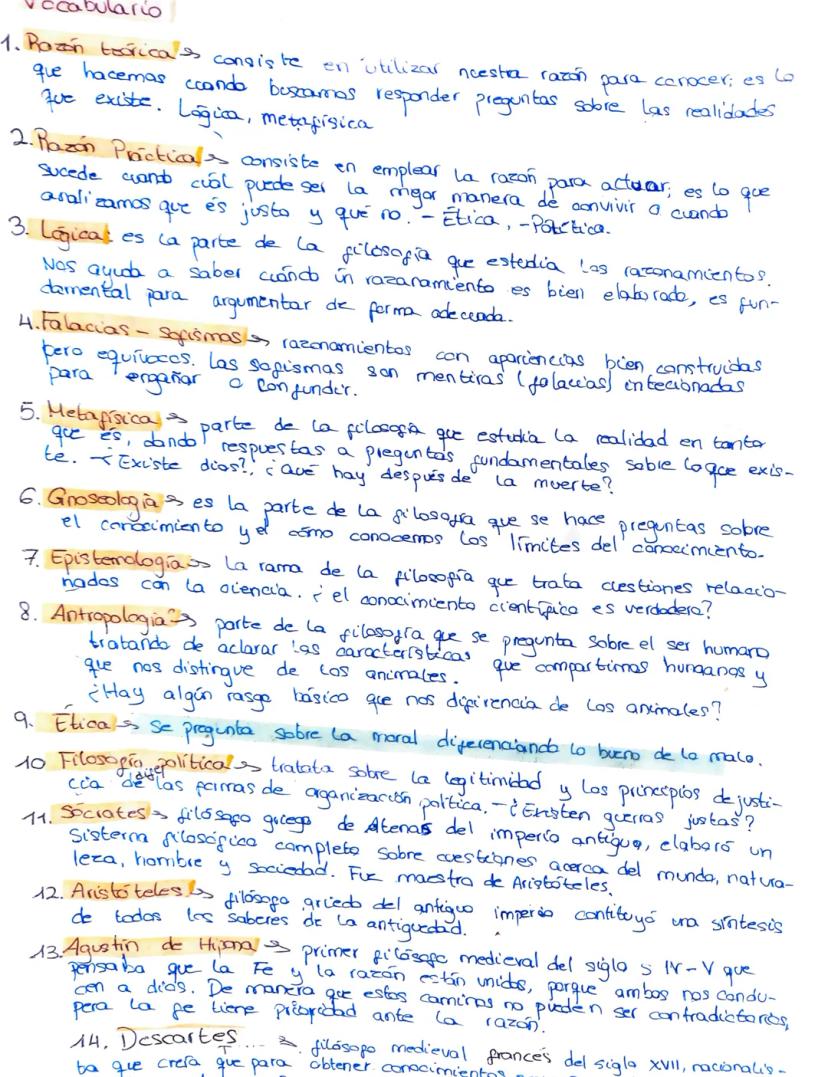 Vocabulario
1. Razón teórica → consiste en utilizar nuestra razón para conocer; es lo
que hacemos cuando buscamos responder preguntas sobre las realidades
que existe. Lógica, metafísica
2. Razón Práctica → consiste en emplear la razón para actuar; es lo que
sucede cuando cuál puede ser la mejor manera de convivir o cuando
analizamos que és justo y qué no. - Ética, - Política.
3. Lógica: es la parte de la filosofía que estudia los razonamientos.
Nos ayuda a saber cuándo un razonamiento es bien elaborado, es fun-
damental para argumentar de forma adecuada.
4. Falacias - sofismos → razonamientos con apariencias bien construidas
pero equívocos. Las sofismas son mentiras (falacias) intecionadas
para engañar o confundir.
5. Metafísica → parte de la filosofía que estudia la realidad en tanto
que és, dando respuestas a preguntas fundamentales sobre lo que exis-
te. - ¿Existe dios?, ¿Qué hay después de la muerte?
6. Gnoseología → es la parte de la filosofía que se hace preguntas sobre
el conocimiento y el cómo conocemos los límites del conocimiento.
7. Epistemología → La rama de la filosofía que trata cuestiones relacio-
nadas con la ciencia. ¿el conocimiento científico es verdadero?
8. Antropología → parte de la filosofía que se pregunta sobre el ser humano
tratando de aclarar las características que compartimos humanos y
que nos distingue de los animales.
¿Hay algún rasgo básico que nos difirencia de los animales?
9. Ética → se pregunta sobre la moral diferenciando lo bueno de lo malo.
10 Filosofía política → tratata sobre la legitimidad y los principios de justi-
cia de las formas de organización política. - ¿Existen guerras justas?
11. Sócrates → filósofo griego de Atenas del imperio antiguo, elaboró un
sistema filosófico completo sobre cuestiones acerca del mundo, natura-
leza, hombre y sociedad. Fue maestro de Aristóteles.
12. Aristóteles → filósofo griedo del antiguo imperio contituyó una síntesis
de todos los saberes de la antiguedad.
13. Agustín de Hipona → primer filósofo medieval del siglo s IV-V que
pensaba que la Fe y la razón están unidos, porque ambos nos condu-
cen a dios. De manera que estos caminos no pueden ser contradictorios,
pero la fe tiene prioridad ante la razón.
14. Descartes ... → filósofo medieval francés del siglo XVII, racionalis-
ta que creía que para obtener conocimientos